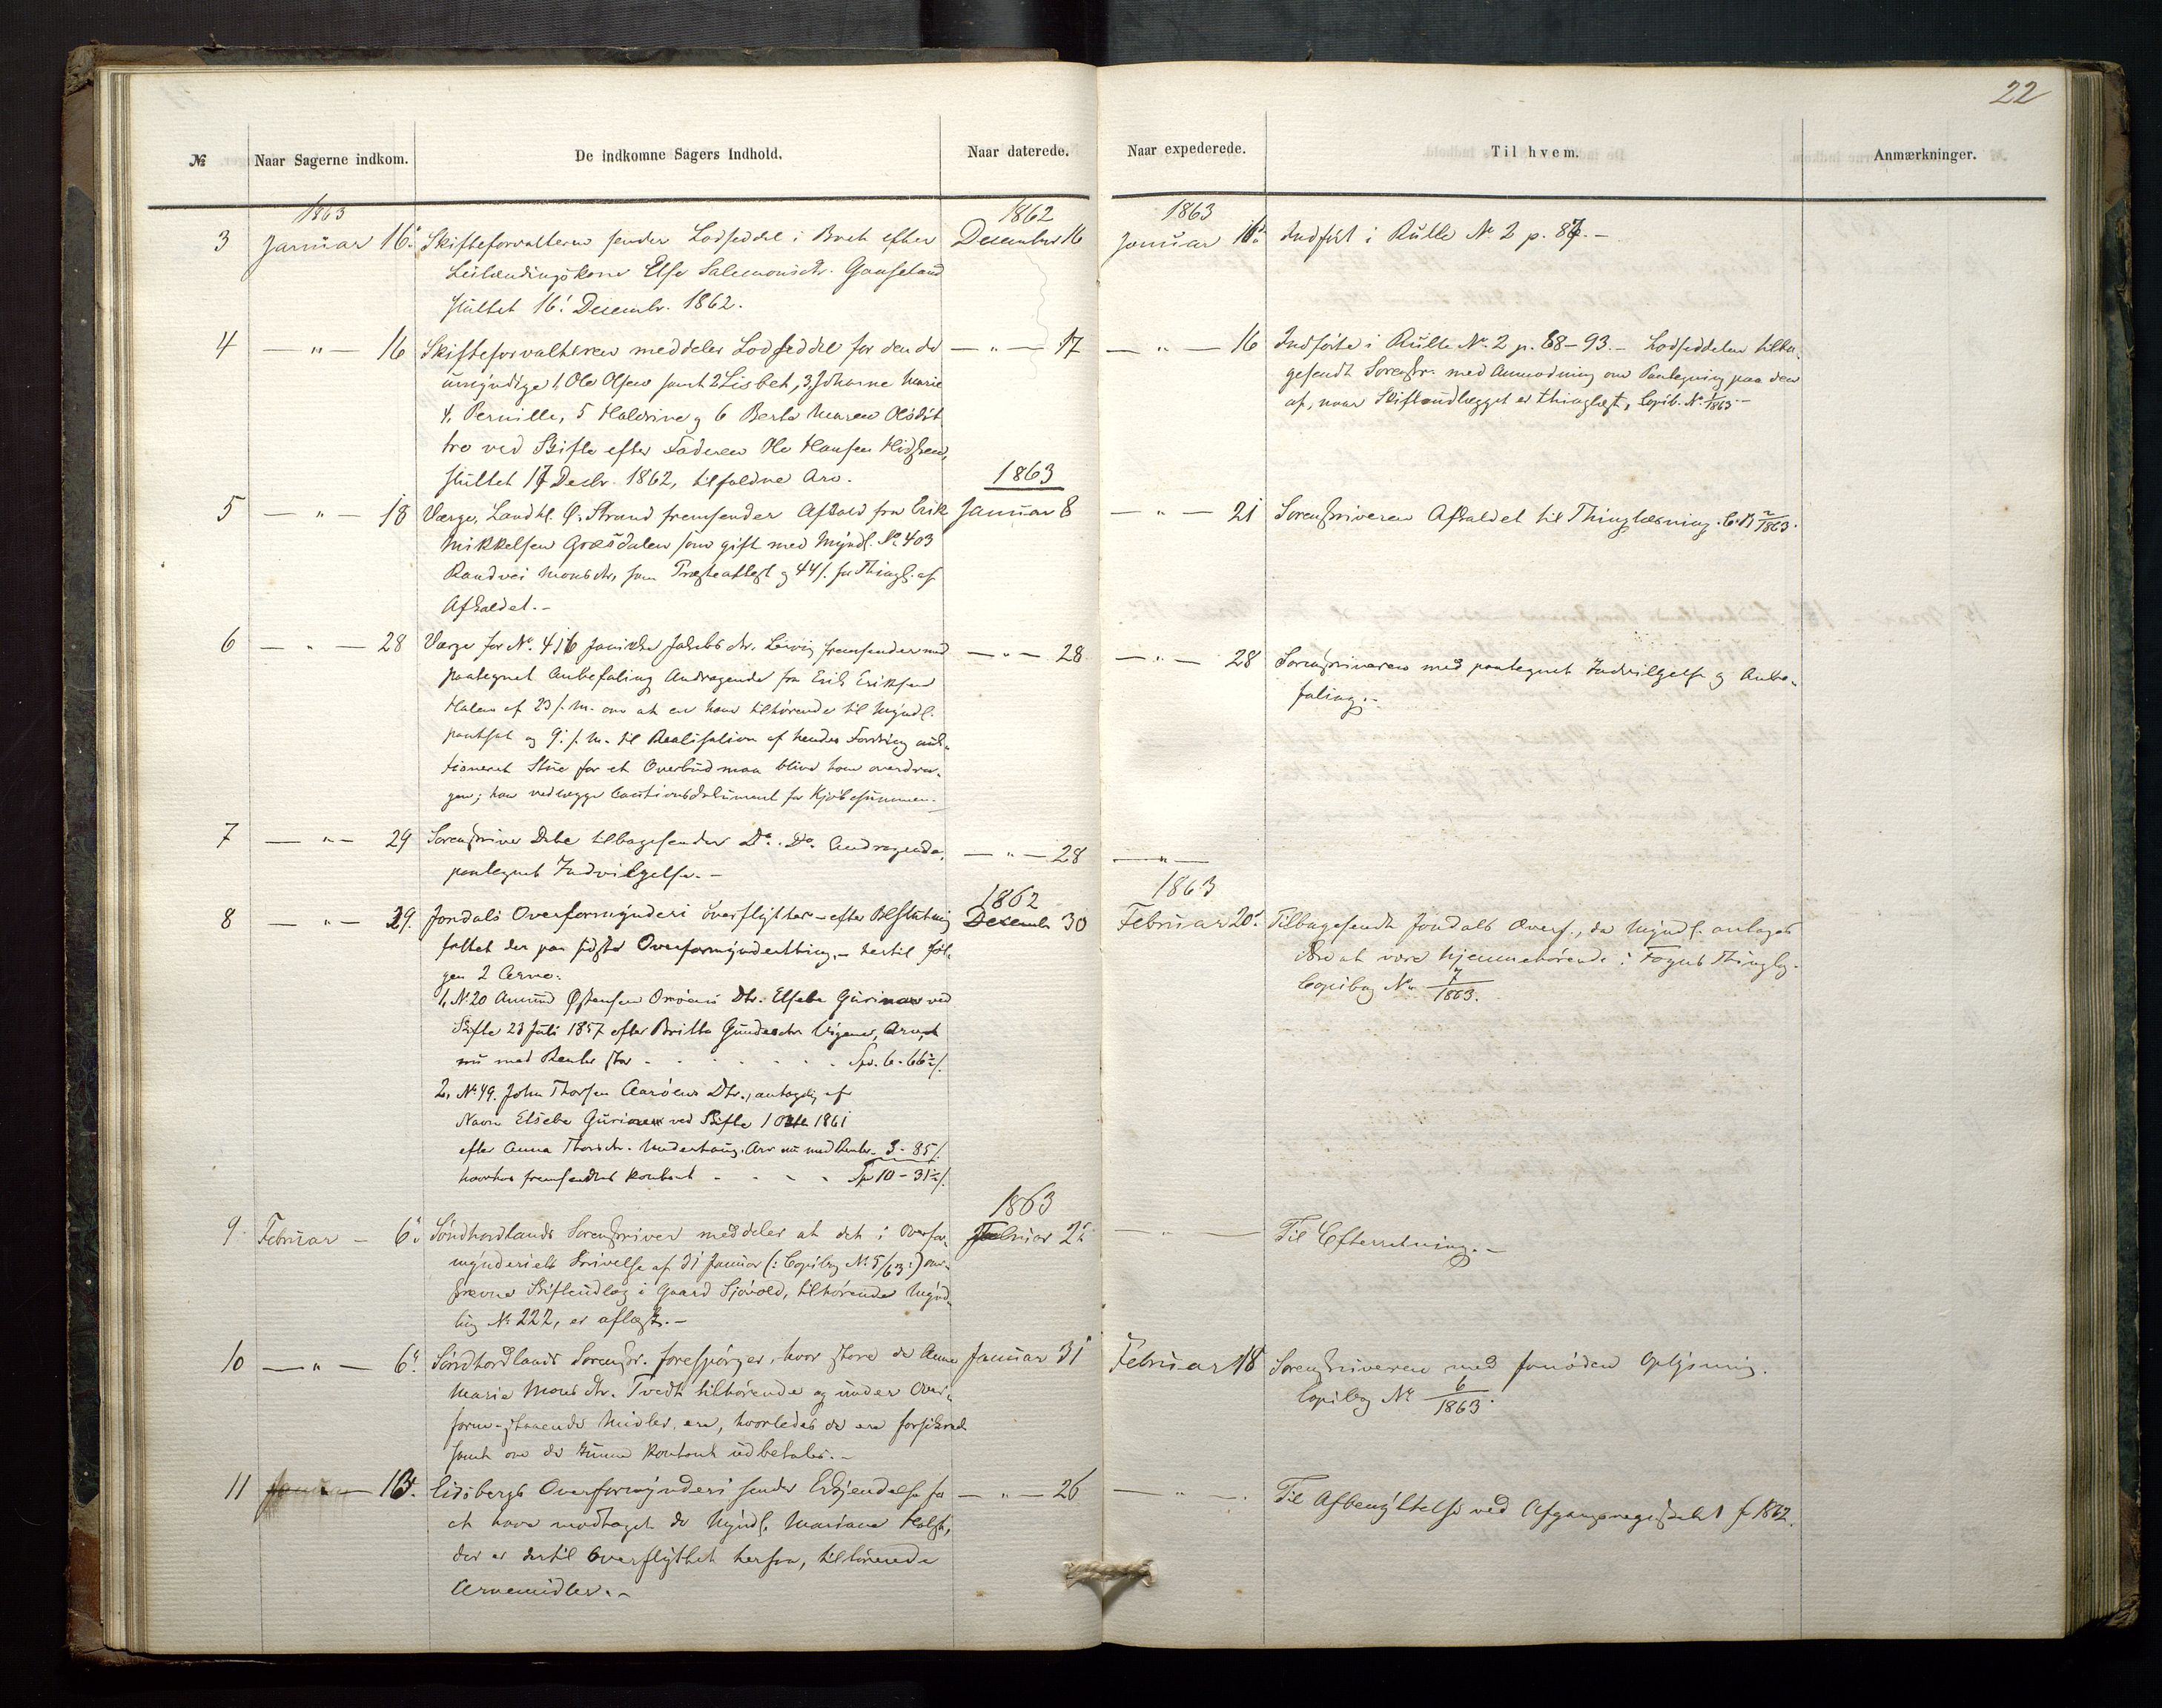 22
№ Naar Sagerne indkom. De indkomne Sagers Indhold. Naar daterede. Naar expederede. Til hvem. Anmærkninger.
1863 1862 1863
3 Januar 16. Skifteforvalteren sender Lodseddel i Boet efter Decembr 16 Januar 16. Indført i Rulle No 2 p. 87.-
Leilændingskone Else Salemonsdtr. Gauseland
sluttet 16. Decembr. 1862.
4 — " — 16 Skifteforvalteren meddeler Lodseddel for den de — " — 17 — " — 16 Indførte i Rulle No. 2 p. 88-93.- Lodseddelen tilba-
umyndige 1, Ole Olsen samt 2 Lisbet, 3, Johanne Marie gesendt Sorenskr. med Anmodning om Paategning paa den
4, Pernille, 5 Haldrine og 6 Berta Maren Olsdøt- af, naar Skifteudlægget er thinglæst, Copib. No. 1/1863.-
tre ved Skifte efter Faderen Ole Hansen
sluttet 17 Decbr. 1862, tilfaldne Arv.
1863
5 — " — 18 Værge, Landhl. Strand fremsender Afkald fra Erik Januar 8 — " — 21 Sorenskriveren Afkaldet til Thinglæsning. C. B 2/1863.
Mikkelsen Græsdalen som gift med Myndl. No 403
Randvei Monsdtr, samt Præsteattest og 44 s. for Thingl. af
Afkaldet.-
6 — " — 28 Værge for No. 416 Jakobsdtr. Lervig fremsender med — " — 28 — " — 28 Sorenskriveren med paategnet Indvilgelse og Anbe-
paategnet Anbefaling Andragende fra Erik Eriksen faling.-
af 23 f. M. om at en ham tilhørende til Myndl.
pantsat og 9. f. M. til Realisation af hendes Fordring auk-
tioneret Stue for et Overbud maa blive ham overdra-
gen; han vedlægger Cautionsdokument for Kjøbesummen.-
7 — " — 29 Sorenskriver Dahe tilbagesender Do. Do. Andragende, — " — 28 — " —
paategnet Indvilgelse.-
1862 1863
8 — " — 29. Jondals Overformynderi overflytter - efter Beslutning Decembr 30 Februar 20. Tilbagesendt Jondals Overf., da Myndl. antages
fattet der paa sidste Overformynderthing, - hertil føl- at være hjemmehørende i Thinglag.
gen 2 Arve: Copibog No. 7/1863.
1, No 20 Amund Østensen Dtr. Elsebe Gurine ved
Skifte 23 Juli 1857 efter Britta Gundersdtr. Arv, at
nu med Renter stor - - - - - - Spd. 6. 66½ s.
2, No 49. John Thorsen Aarøens Dtr., antagelig af
Navn Elsebe Gurine ved Skifte 1 Octbr 1861
efter Anna Thorsdtr. Underhaug. Arv nu med Renter - 3 - 85 s.
hvorhos fremsendtes kontant - - - - Sp 10 - 31½ s.
1863
9. Februar - 6. Søndhordlands Sorenskriver meddeler at det i Overfor- Februar 2. — " — Til Efterretning.-
mynderiets Skrivelse af 31 Januar (: Copibog No. 5/63:) om-
skrevne Skifteudlæg i Gaard Sjovold, tilhørende Mynd-
ling No. 222, er aflæst.-
10 — " — 6. Søndhordlands Sorenskr. forespørger, hvor store de Anna Januar 31 Februar 18 Sorenskriveren med fornøden Oplysning.
Marie Monsdtr. Tvedt tilhørende og under Over- Copibog No. 6/1863.
form - staaende Midler, ere, hvorledes de ere forsikrede
samt om de kunne kontant udbetales.-
11 — " — 13. Eidsbergs Overformynderi sender Erkjendelse for — " — 26 — " —. Til Afbenyttelse ved Afgangsregisteret f. 1862.
at have modtaget de Myndl. Mariane Holst,
der er dertil overflyttet herfra, tilhørende
Arvemidler.-